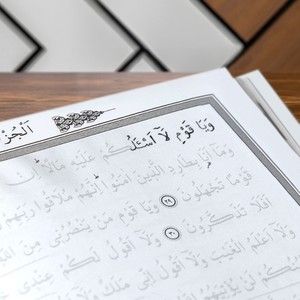 اَلْجُزْ
وَيَا قَوْمِ لَٓا اَسْـَٔلُكُمْ عَلَيْهِ مَالًا
وَمَٓا اَنَا۬ بِطَارِدِ الَّذ۪ينَ اٰمَنُوا اِنَّهُمْ مُلَاقُوا رَبِّهِمْ
قَوْمًا تَجْهَلُونَ ﴿٢٩﴾ وَيَا قَوْمِ مَنْ يَنْصُرُن۪ي مِنَ
اَفَلَا تَذَكَّرُونَ ﴿٣٠﴾ وَلَٓا اَقُولُ لَكُمْ عِنْد۪ي
وَلَٓا اَعْلَمُ الْغَيْبَ وَلَٓا اَقُولُ اِنّ۪ي مَلَكٌ وَلَٓا